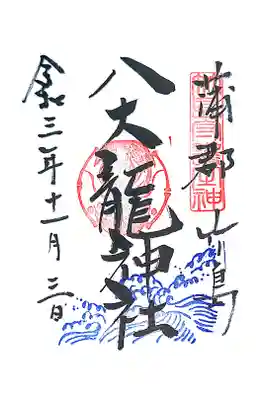 蒲郡 竹島
八大龍神社
令和三年十一月三日